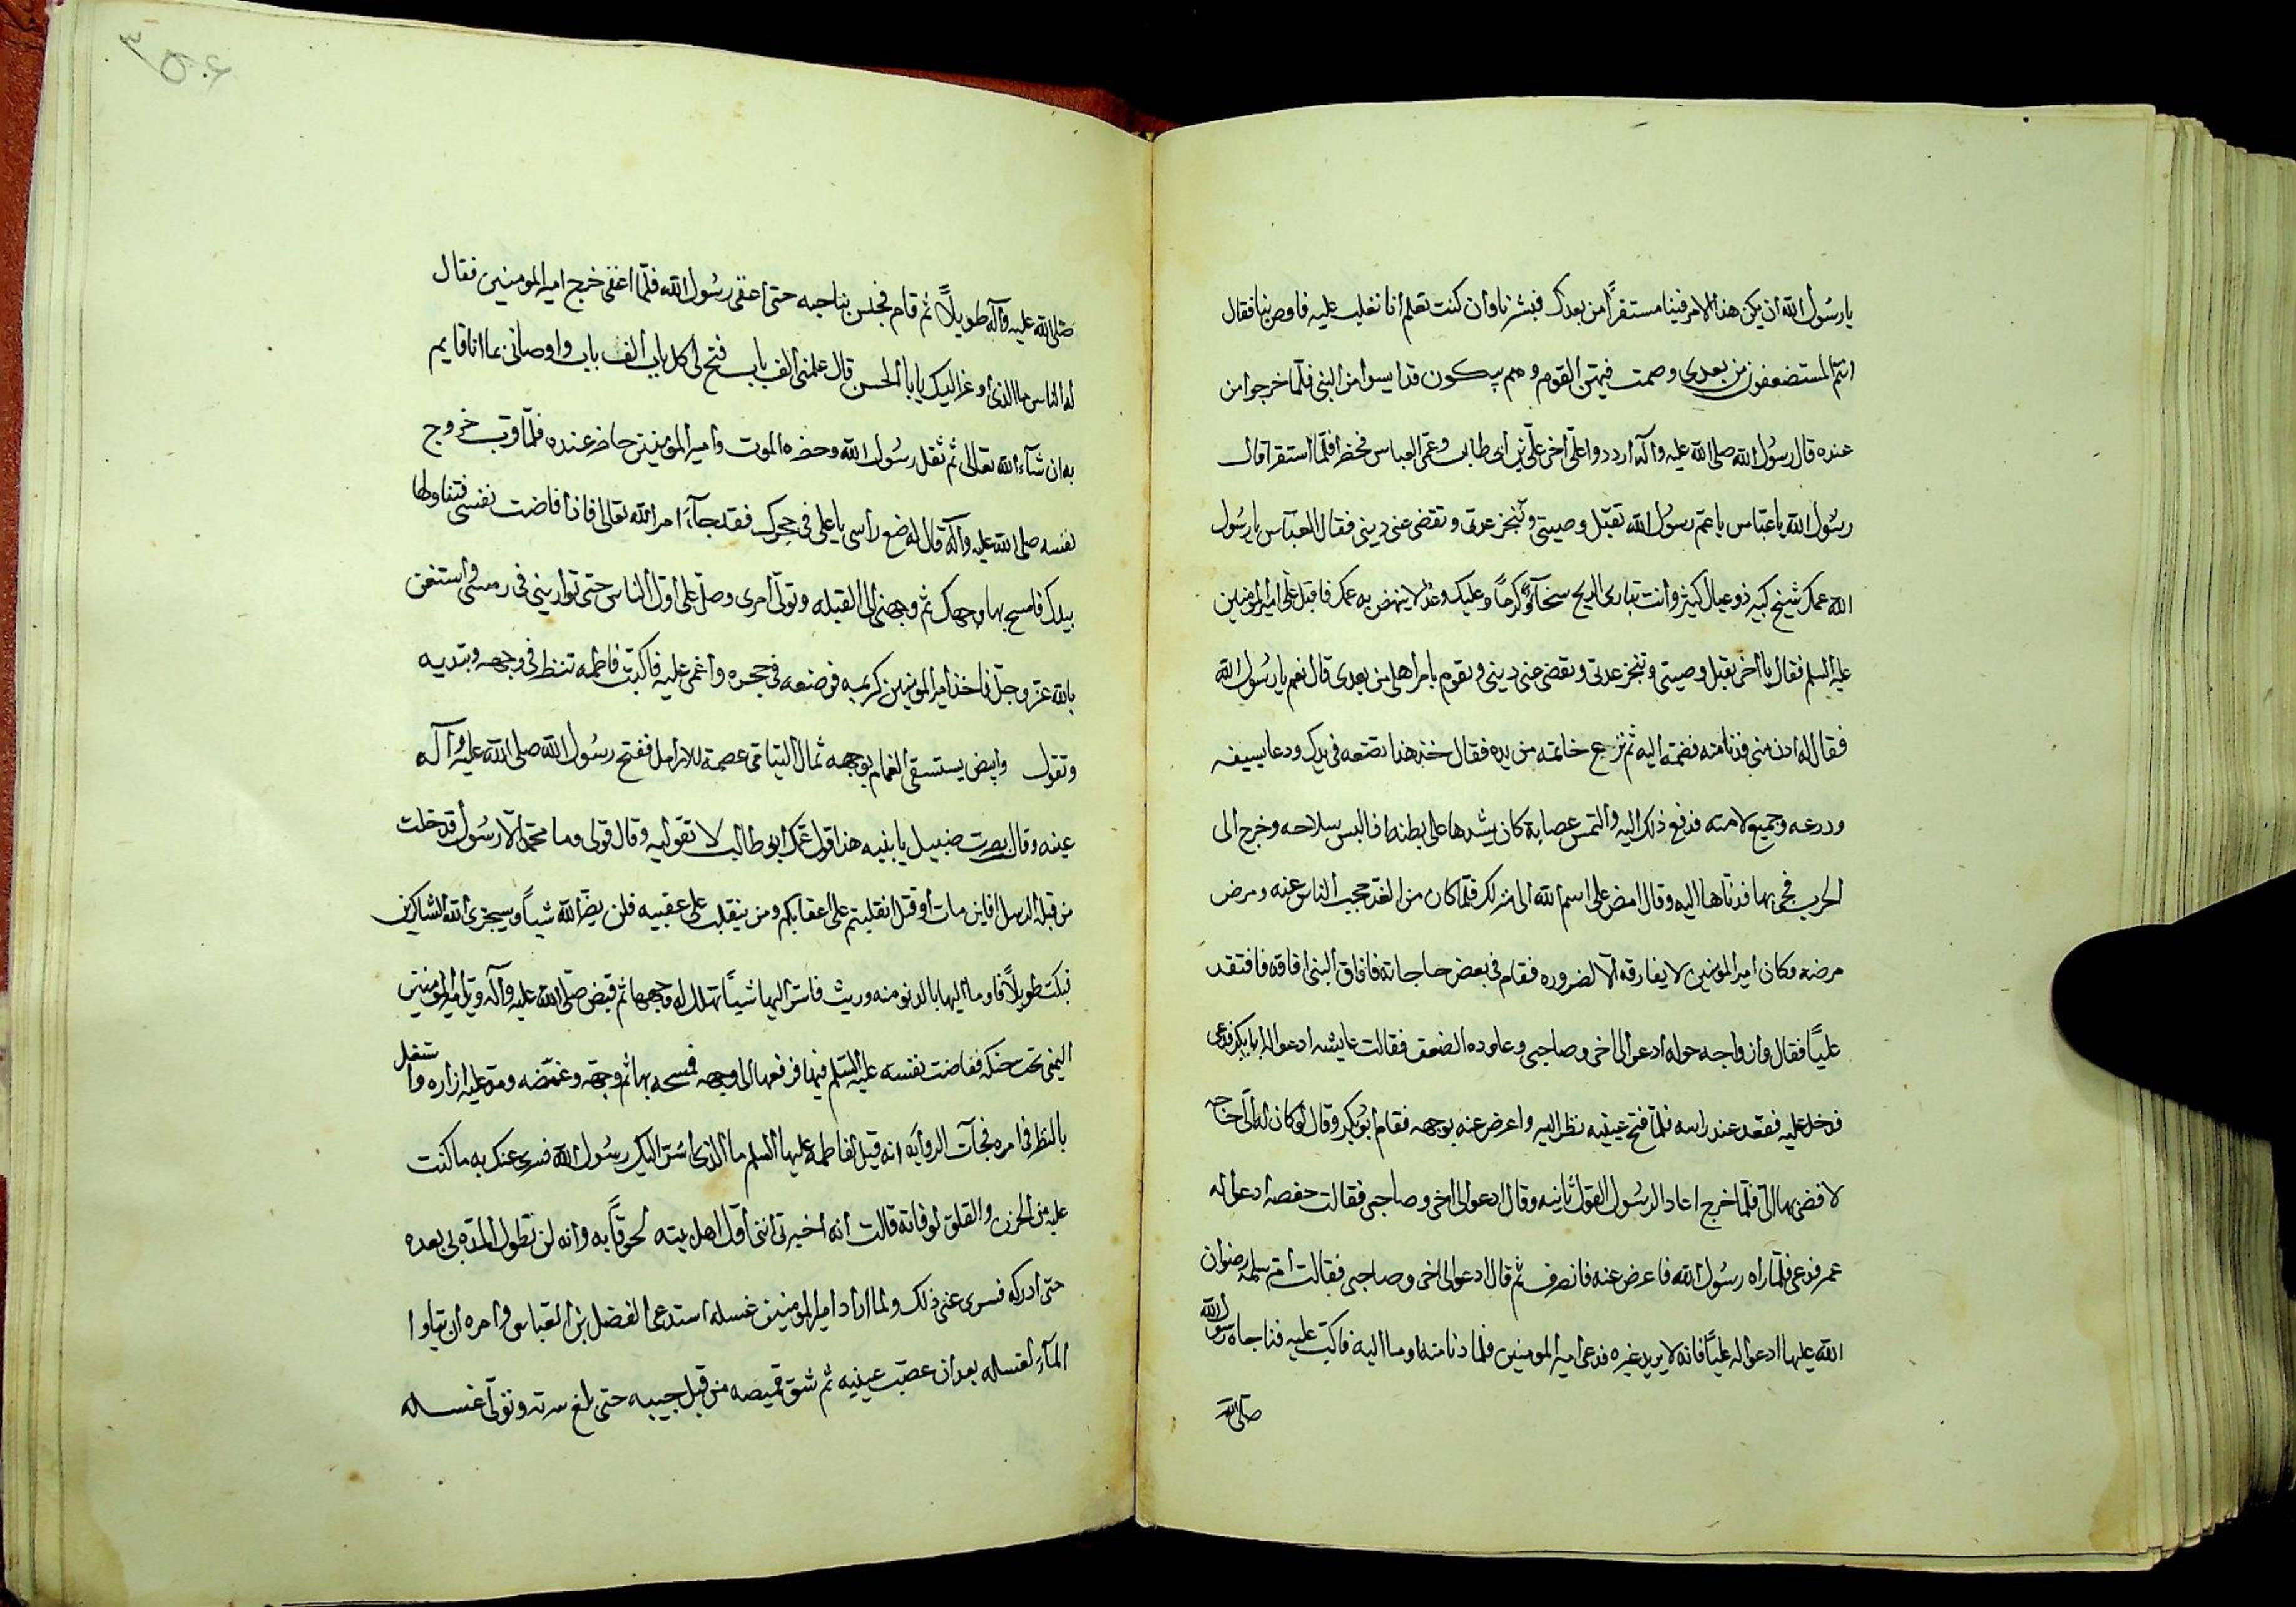 يا رسُول الله ان يكن هذا الامر فينا مستقرًا من بعدك فبشرنا وان كنت تعلم انا نغلب عليه فاوص بنا فقال
انتم المستضعفون من بعدى وصمت فنهض القوم وهم يبكون قد ايسوا من النبى فلمّا خرجوا من
عنده قال رسُول الله صلى الله عليه وآله ارددوا علىّ اخى علىّ بن ابى طالب وعمّى العباس فحضرا فلمّا استقرا قال
رسُول الله يا عبّاس يا عم رسول الله تقبّل وصيتى وتنجز عدتى وتقضى عنى دينى فقال العبّاس يا رسُول
الله عمك شيخ كبير ذو عيال كثير وانت تبارى الريح سخآءً وكرمًا وعليك وعدٌ لا ينهض به عمك فاقبل على امير المؤمنين
عليه السلم فقال يا اخى تقبل وصيتى وتنجز عدتى وتقضى عنى دينى وتقوم بامر اهلى من بعدى قال نعم يا رسُول الله
فقال له ادن منى فدنا منه فضمّه اليه ثم نزع خاتمه من يده فقال خذ هذا تضعه فى يدك ودعا بسيفه
ودرعه وجميع لامته فدفع ذلك اليه والتمس عصابة كان يشدها على بطنه اذا لبس سلاحه وخرج الى
الحرب فجى بها فدفعها اليه وقال امض على اسم الله الى منزلك فلمّا كان من الغد حجب الناس عنه ومرض
مرضه وكان امير المؤمنين لا يفارقه الّا لضروره فقام فى بعض حاجاته فافاق النبى افاقه فافتقد
عليًا فقال وازواجه حوله ادعوا لى اخى وصاحبى وعاوده الضعف فقالت عايشه ادعوا له ابا بكر فدعى
فدخل عليه فقعد عند راسه فلمّا فتح عينيه نظر اليه واعرض عنه بوجهه فقام ابُو بكر وقال لو كان له الىّ حاجه
لافضى بها الىّ فلمّا خرج اعاد الرسُول القول ثانيه وقال ادعوا لى اخى وصاحبى فقالت حفصه ادعوا له
عمر فدعى فلمّا راه رسُول الله فاعرض عنه فانصرف ثم قال ادعوا لى اخى وصاحبى فقالت ام سلمه رضوان
الله عليها ادعوا له عليًا فانه لا يريد غيره فدعى امير المومنين فلما دنا منه اوما اليه فاكبّ عليه فناجاه رسُول الله
صلى الله
صلى الله عليه وآله طويلًا ثم قام فجلس ناحيه حتى اغفى رسُول الله فلمّا اغفى خرج امير المومنين فقال
له الناس ما الذى اوعز اليك يا ابا الحسن قال علمنى الف باب فتح لى كل باب الف باب واوصانى بما انا قايم
به ان شآء الله تعالى ثم ثقل رسُول الله وحضره الموت وامير المؤمنين حاضر عنده فلمّا قرب خروج
نفسه صلى الله عليه وآله قال له ضع راسى يا على فى حجرك فقد جآء امر الله تعالى فاذا فاضت نفسى فتناولها
بيدك فامسح بها وجهك ثم وجهنى الى القبله وتولّ امرى وصلّ على اوّل الناس حتى توارينى فى رمسى واستعن
بالله عزّ وجلّ فاخذ امير المومنين كريمه فوضعه فى حجره واغمى عليه فاكبّت فاطمه تنظر فى وجهه وتندبه
وتقول وابيض يستسقى الغمام بوجهه ثمال اليتامى عصمة للارامل ففتح رسُول الله صلى الله عليه وآله
عينه وقال بصوت ضئيل يا بنيه هذا قول عمّك ابى طالب لا تقوليه وقال قولى وما محمّد الّا رسُول قد خلت
من قبله الرسل افاين مات او قتل انقلبتم على اعقابكم ومن ينقلب على عقبيه فلن يضرّ الله شيأ وسيجزى الله الشاكرين
فبكت طويلًا فاوما اليها بالدنو منه فاسرّ اليها شيئًا تهلل له وجهها ثم قبض صلى الله عليه وآله ويد امير المؤمنين
اليمنى تحت حنكه ففاضت نفسه عليه السّلم فيها فرفعها الى وجهه فمسحه بها ثم وجهه وغمّضه ومدّ عليه ازاره واشتغل
بالنظر فى امره فجآت الروايه انه قيل لفاطمه عليها السلم ما الذى اسَرّ اليك رسُول الله فسرى عنك به ما كنت
عليه من الحزن والقلق لوفاته قالت انه اخبرنى اننى اوّل اهل بيته لحوقًا به وانه لن تطول المدّه لى بعده
حتى ادركه فسرى عنى ذلك ولما اراد امير المومنين غسله استدعى الفضل بن العبّاس وامره ان يناوله
المآء لغسله بعد ان عصّب عينيه ثم شق قميصه من قبل جيبه حتى بلغ سرته وتولّى غسله